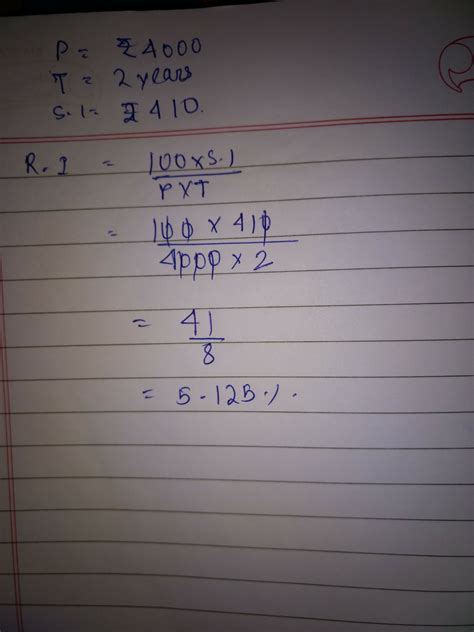 P = ₹4000
T = 2 years
S.I = ₹410.
R.I = 100×S.I
P×T
= 100 × 410
4000 × 2
= 41
8
= 5.125%.